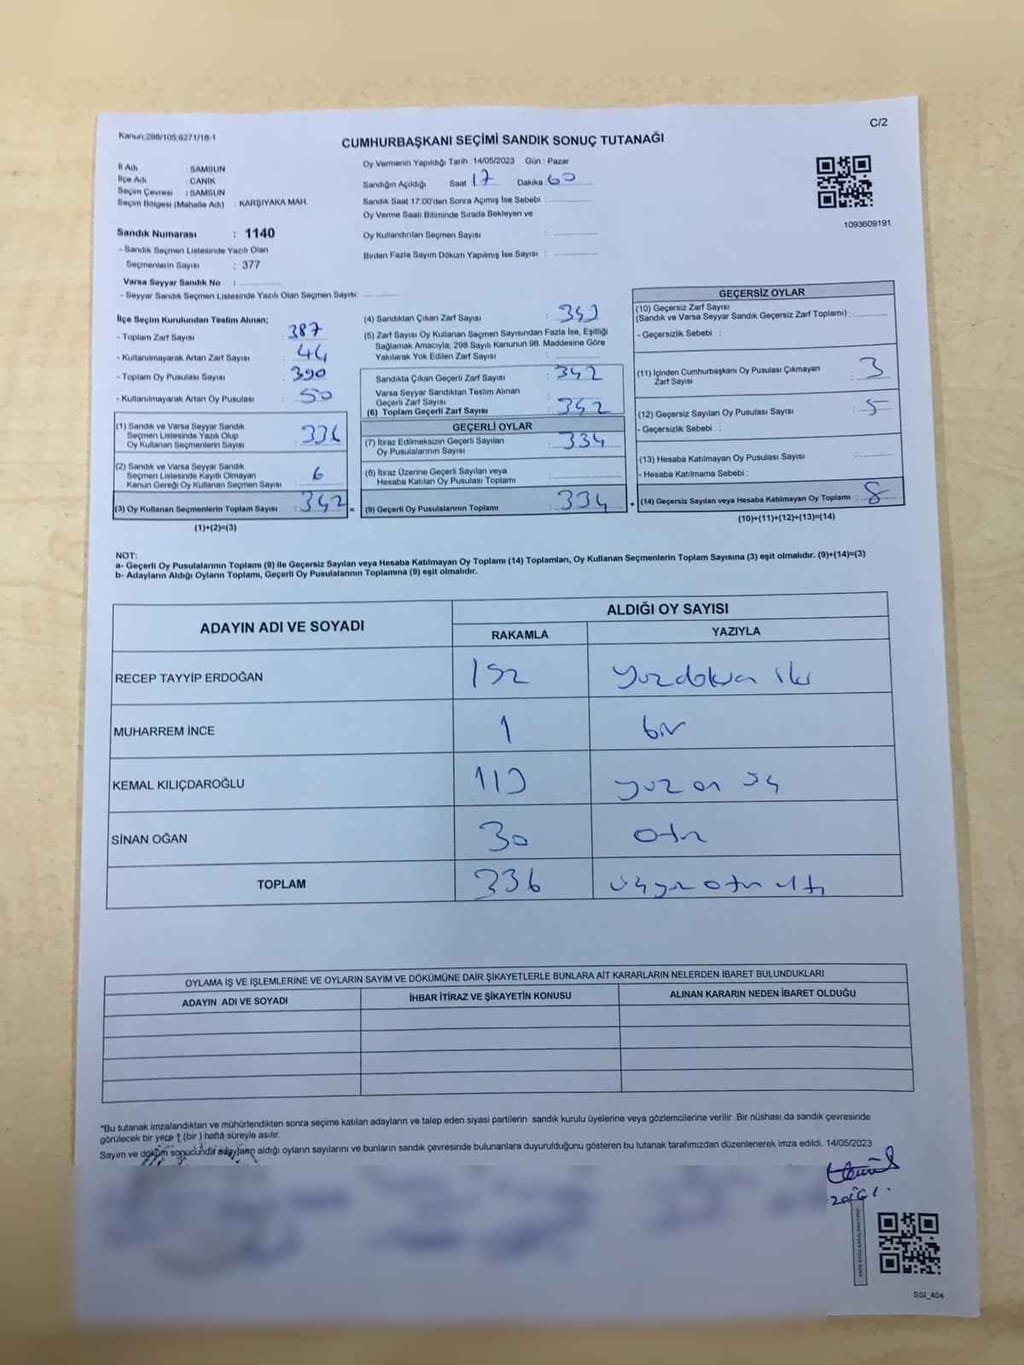 Kanun:298/105,6271/18-1
C/2
CUMHURBAŞKANI SEÇİMİ SANDIK SONUÇ TUTANAĞI
İl Adı : SAMSUN
İlçe Adı : CANİK
Seçim Çevresi : SAMSUN
Seçim Bölgesi (Mahalle Adı) : KARŞIYAKA MAH.
Sandık Numarası : 1140
- Sandık Seçmen Listesinde Yazılı Olan
Seçmenlerin Sayısı : 377
Varsa Seyyar Sandık No :
- Seyyar Sandık Seçmen Listesinde Yazılı Olan Seçmen Sayısı:
Oy Vermenin Yapıldığı Tarih : 14/05/2023 Gün : Pazar
Sandığın Açıldığı Saat 17 Dakika 60
Sandık Saat 17:00'den Sonra Açımış İse Sebebi :
Oy Verme Saati Bitiminde Sırada Bekleyen ve
Oy Kullandırılan Seçmen Sayısı :
Birden Fazla Sayım Döküm Yapılmış İse Sayısı :
1093609191
İlçe Seçim Kurulundan Teslim Alınan;
- Toplam Zarf Sayısı : 387
- Kullanılmayarak Artan Zarf Sayısı : 44
- Toplam Oy Pusulası Sayısı : 390
- Kullanılmayarak Artan Oy Pusulası : 50
(1) Sandık ve Varsa Seyyar Sandık
Seçmen Listesinde Yazılı Olup
Oy Kullanan Seçmenlerin Sayısı : 336
(2) Sandık ve Varsa Seyyar Sandık
Seçmen Listesinde Kayıtlı Olmayan
Kanun Gereği Oy Kullanan Seçmen Sayısı : 6
(3) Oy Kullanan Seçmenlerin Toplam Sayısı : 342
(1)+(2)=(3)
(4) Sandıktan Çıkan Zarf Sayısı : 342
(5) Zarf Sayısı Oy Kullanan Seçmen Sayısından Fazla İse, Eşitliği
Sağlamak Amacıyla; 298 Sayılı Kanunun 98. Maddesine Göre
Yakılarak Yok Edilen Zarf Sayısı :
Sandıkta Çıkan Geçerli Zarf Sayısı : 342
Varsa Seyyar Sandıktan Teslim Alınan
Geçerli Zarf Sayısı
(6) Toplam Geçerli Zarf Sayısı : 342
GEÇERLİ OYLAR
(7) İtiraz Edilmeksizin Geçerli Sayılan
Oy Pusulalarının Sayısı : 334
(8) İtiraz Üzerine Geçerli Sayılan veya
Hesaba Katılan Oy Pusulası Toplamı :
(9) Geçerli Oy Pusulalarının Toplamı : 334
GEÇERSİZ OYLAR
(10) Geçersiz Zarf Sayısı
(Sandık ve Varsa Seyyar Sandık Geçersiz Zarf Toplamı) :
- Geçersizlik Sebebi :
(11) İçinden Cumhurbaşkanı Oy Pusulası Çıkmayan
Zarf Sayısı : 3
(12) Geçersiz Sayılan Oy Pusulası Sayısı : 5
- Geçersizlik Sebebi :
(13) Hesaba Katılmayan Oy Pusulası Sayısı :
- Hesaba Katılmama Sebebi :
(14) Geçersiz Sayılan veya Hesaba Katılmayan Oy Toplamı : 8
(10)+(11)+(12)+(13)=(14)
NOT:
a- Geçerli Oy Pusulalarının Toplamı (9) ile Geçersiz Sayılan veya Hesaba Katılmayan Oy Toplamı (14) Toplamları, Oy Kullanan Seçmenlerin Toplam Sayısına (3) eşit olmalıdır. (9)+(14)=(3)
b- Adayların Aldığı Oyların Toplamı, Geçerli Oy Pusulalarının Toplamına (9) eşit olmalıdır.
ADAYIN ADI VE SOYADI
ALDIĞI OY SAYISI
RAKAMLA YAZIYLA
RECEP TAYYİP ERDOĞAN 192 yüzdoksan iki
MUHARREM İNCE 1 bir
KEMAL KILIÇDAROĞLU 113 yüz on üç
SİNAN OĞAN 30 otuz
TOPLAM 336 üçyüz otuz altı
OYLAMA İŞ VE İŞLEMLERİNE VE OYLARIN SAYIM VE DÖKÜMÜNE DAİR ŞİKAYETLERLE BUNLARA AİT KARARLARIN NELERDEN İBARET BULUNDUKLARI
ADAYIN ADI VE SOYADI İHBAR İTİRAZ VE ŞİKAYETİN KONUSU ALINAN KARARIN NEDEN İBARET OLDUĞU
*Bu tutanak imzalandıktan ve mühürlendikten sonra seçime katılan adayların ve talep eden siyasi partilerin sandık kurulu üyelerine veya gözlemcilerine verilir .Bir nüshası da sandık çevresinde
görülecek bir yere 1 (bir ) hafta süreyle asılır.
Sayım ve döküm sonucunda adayların aldığı oyların sayılarını ve bunların sandık çevresinde bulunanlara duyurulduğunu gösteren bu tutanak tarafımızdan düzenlenerek imza edildi. 14/05/2023
SSI_404